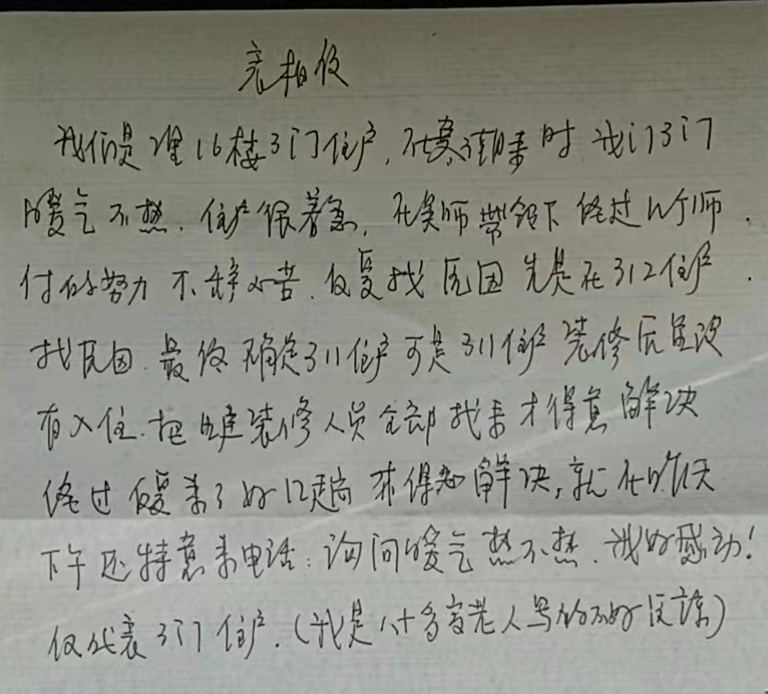 表扬信
我们是理16楼3门住户,在寒潮来时我们3门
暖气不热.住户很着急,在吴师带领下经过几个师.
付的努力不辞辛苦.反复找原因先是在312住户.
找原因.最终确定311住户可是311住户装修后还没
有入住.把装修人员全部找来才得意解决
经过反复来了好几趟才得意解决,就在昨天
下午还特意来电话:询问暖气热不热.我好感动!
仅代表3门住户.(我是八十多岁老人写的不好见谅)